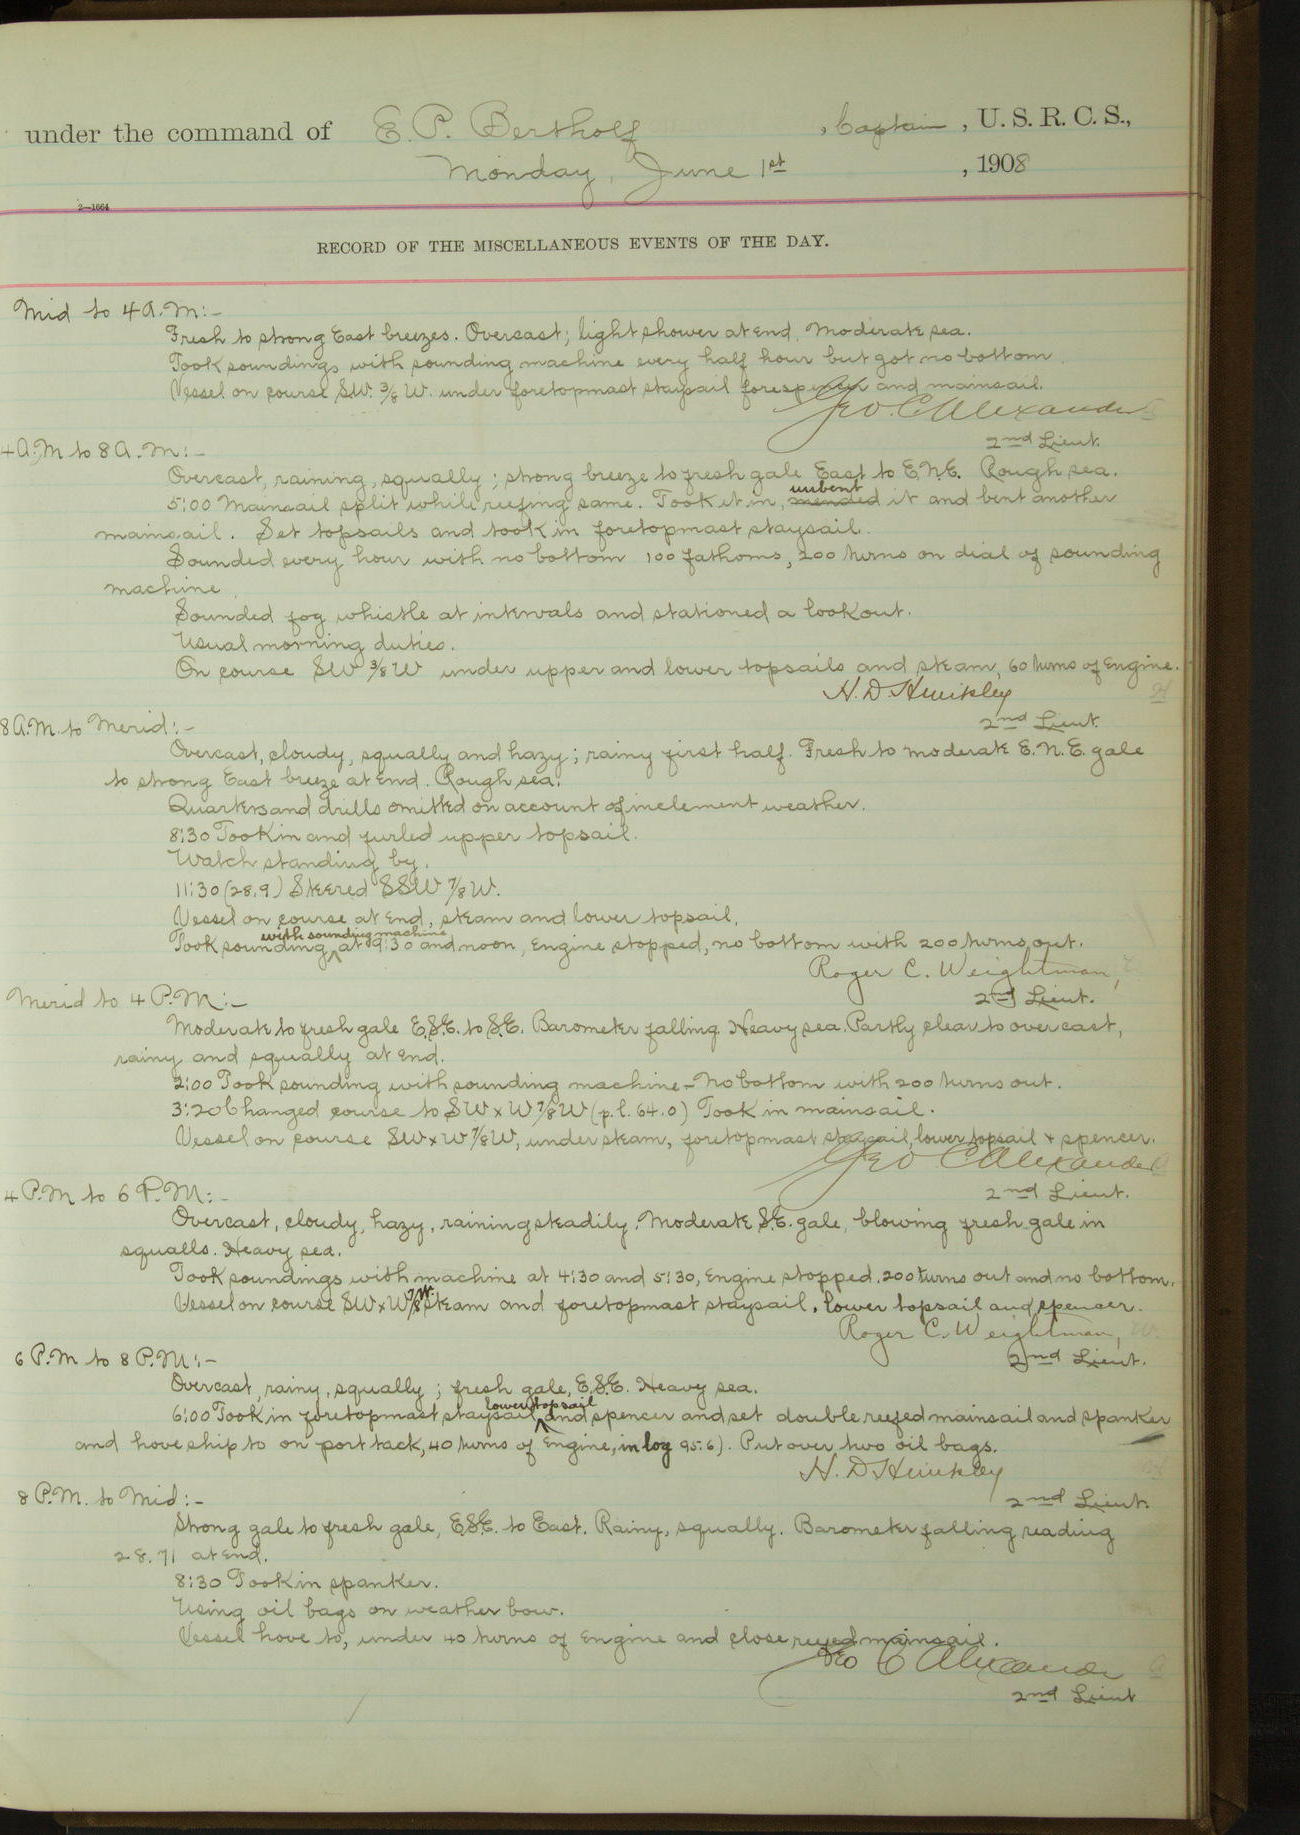 under the command of E. P. Bertholf, Captain, U. S. R. C. S.,
Monday, June 1st, 1908
2—1664
RECORD OF THE MISCELLANEOUS EVENTS OF THE DAY.
Mid to 4 A.M:-
Fresh to strong East breezes. Overcast; light shower at end. Moderate sea.
Took soundings with sounding machine every half hour but got no bottom.
Vessel on course SW. 3/8 W. under foretopmast staysail forespencer and mainsail.
Geo. C. Alexander
2nd Lieut.
4 A.M to 8 A.M:-
Overcast, raining, squally; strong breeze to fresh gale East to E.N.E. Rough sea.
unbent
5:00 Mainsail split while reefing same. Took it in, mended it and bent another
mainsail. Set topsails and took in foretopmast staysail.
Sounded every hour with no bottom 100 fathoms, 200 turns on dial of sounding
machine.
Sounded fog whistle at intervals and stationed a lookout.
Usual morning duties.
On course SW 3/8 W under upper and lower topsails and steam, 60 turns of Engine.
H. D. Hinckley
2nd Lieut.
8 A.M. to Merid:-
Overcast, cloudy, squally and hazy; rainy first half. Fresh to moderate E.N.E. gale
to strong East breeze at end. Rough sea.
Quarters and drills omitted on account of inclement weather.
8:30 Took in and furled upper topsail.
Watch standing by.
11:30 (28.9) Steered SSW 7/8 W.
Vessel on course at end, steam and lower topsail.
with sounding machine
Took sounding ^ at 9:30 and noon, Engine stopped, no bottom with 200 turns out.
Roger C. Weightman,
2nd Lieut.
Merid to 4 P.M:-
Moderate to fresh gale E.S.E. to S.E. Barometer falling. Heavy sea. Partly clear to overcast,
rainy and squally at end.
2:00 Took sounding with sounding machine - No bottom with 200 turns out.
3:20 Changed course to SWxW 7/8 W (p.l. 64.0) Took in mainsail.
Vessel on course SWxW 7/8 W, under steam, foretopmast staysail, lower topsail + spencer.
Geo C Alexander
2nd Lieut.
4 P.M to 6 P.M:-
Overcast, cloudy, hazy, raining steadily. Moderate S.E. gale, blowing fresh gale in
squalls. Heavy sea.
Took soundings with machine at 4:30 and 5:30, Engine stopped. 200 turns out and no bottom.
Vessel on course SWxW 7/8 W. steam and foretopmast staysail, lower topsail and spencer.
Roger C. Weightman,
2nd Lieut.
6 P.M to 8 P.M:-
Overcast, rainy, squally; fresh gale, E.S.E. Heavy sea.
lower topsail
6:00 Took in foretopmast staysail, ^ and spencer and set double reefed mainsail and spanker
and hove ship to on port tack, 40 turns of Engine, in log 95.6). Put over two oil bags.
H. D Hinckley
2nd Lieut.
8 P.M. to Mid:-
Strong gale to fresh gale, E.S.E. to East. Rainy, squally. Barometer falling reading
28.71 at end.
8:30 Took in spanker.
Using oil bags on weather bow.
Vessel hove to, under 40 turns of Engine and close reefed mainsail.
Geo C Alexander
2nd Lieut